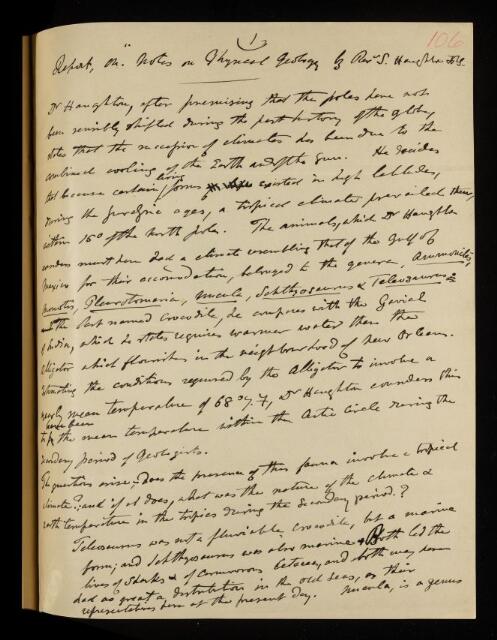 1
106
Report, on "Notes on Physical Geology by Revd S. Haughton F.R.S.
Dr Haughton, after premising that the poles have not
been sensibly shifted during the past history of the globe,
states that the succession of climates has been due to the
combined cooling of the Earth and of the Sun. He decides
that because certain living forms existed in high latitudes,
during the Jurassic ages, a tropical climate prevailed there,
within 15° of the north pole. The animals, which Dr Haughton
considers must have had a climate resembling that of the Gulf of
Mexico for their accomodation, belonged to the genera, Ammonites,
Monotis, Pleurotomaria, Nucula, Ichthyosaurus & Teleosaurus.
the last named crocodile, he compares with the Gavial
of India, which he states requires warmer water than the
alligator which flourishes in the neighbourhood of New Orleans.
Estimating the conditions required by the Alligator to involve a
yearly mean temperature of 68°.7 F, Dr Haughton considers this
to have been the mean temperature within the Arctic Circle during the
Secondary period of Geologists.
The questions arise; Does the presence of this fauna involve a tropical
climate?; and if it does, what was the nature of the climate &
earth temperature in the tropics during the Secondary period?
Teleosaurus was not a fluviatile crocodile, but a marine
form; and Ichthyosaurus was also marine. Both led the
lives of Sharks & of carnivorous Cetacea, and both may have
had as great a distribution in the old seas, as their
representatives have at the present day. Nucula, is a genus